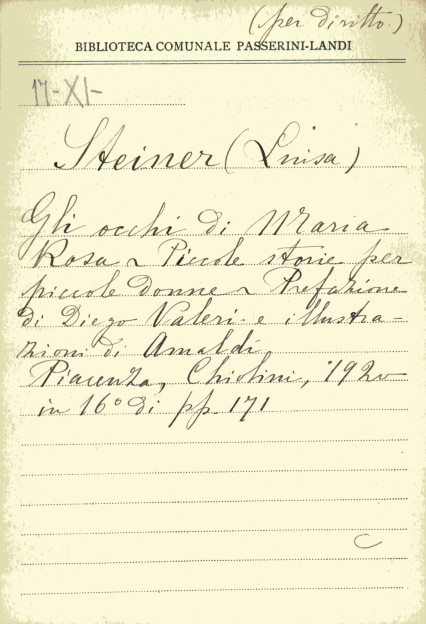 (per diritto.)
BIBLIOTECA COMUNALE PASSERINI-LANDI
17-XI-
Steiner (Luisa)
Gli occhi di Maria
Rosa ~ Piccole storie per
piccole donne ~ Prefazione
di Diego Valeri. e illustra-
zioni di Amaldi
Piacenza, Chiolini, 1920
in 16° di pp. 171
C